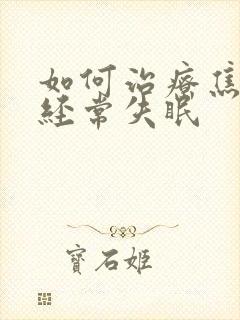 如何治療焦
經常失眠
寶石姬